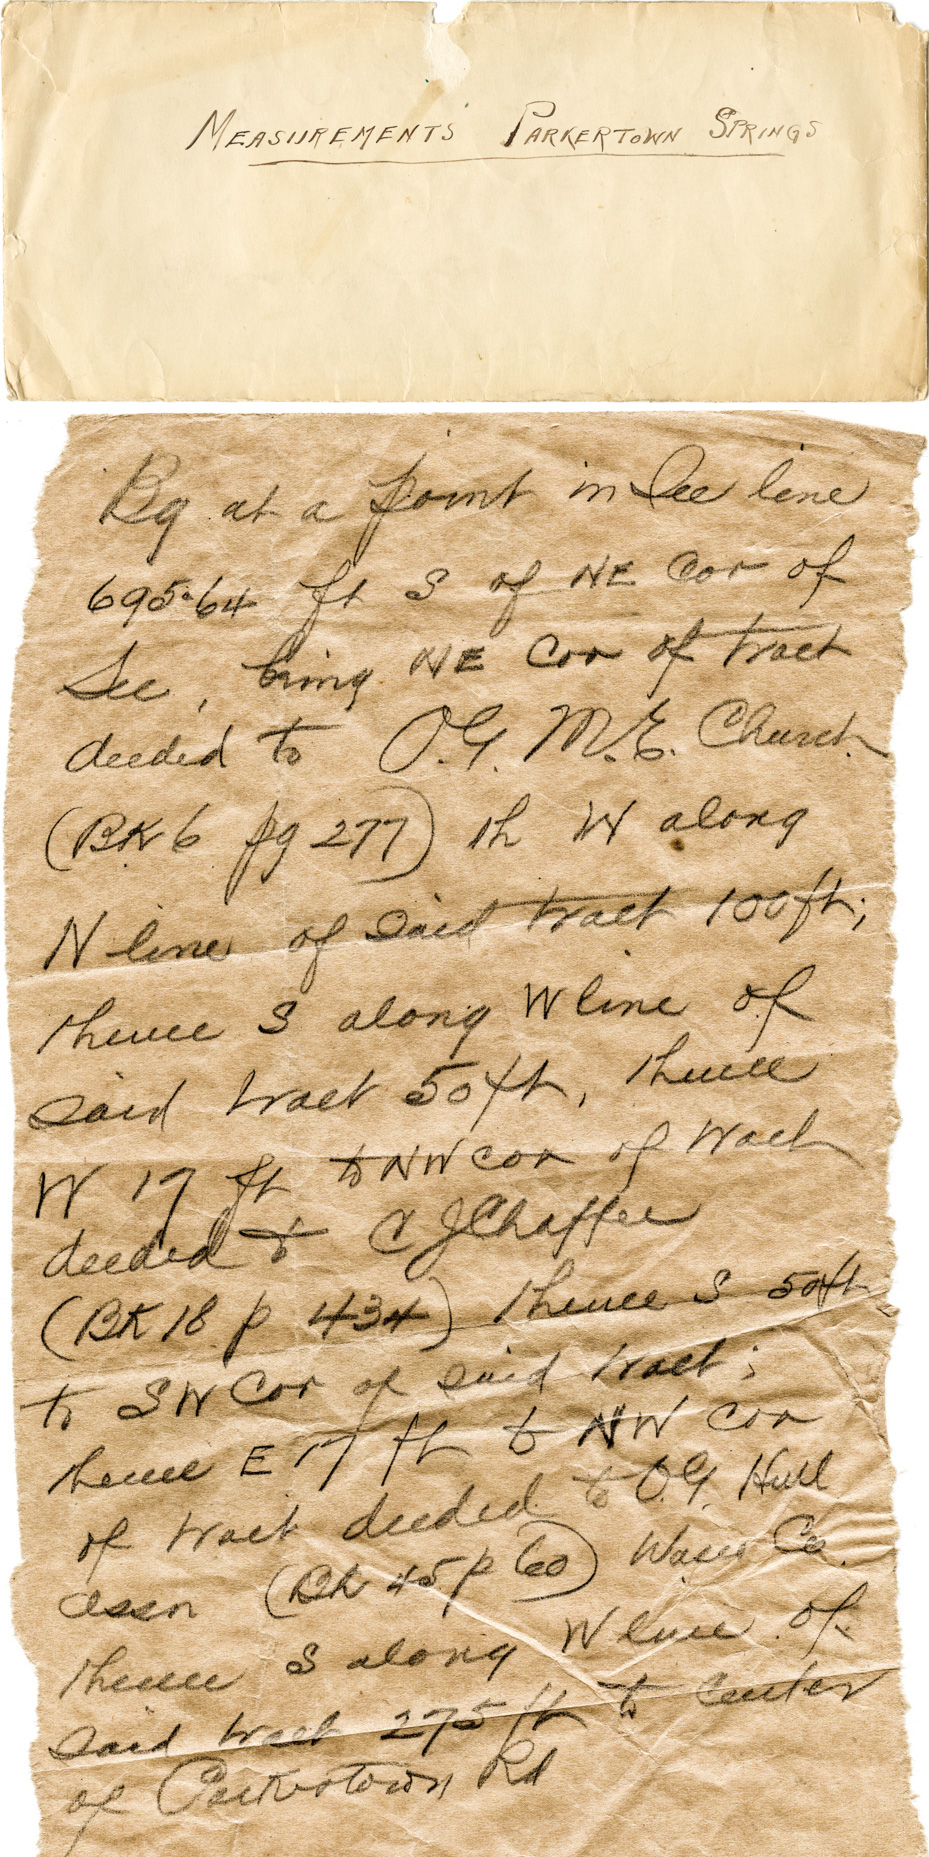 MEASUREMENTS PARKERTOWN SPRINGS
Bg at a point in Sec line
695.64 ft S of NE Cor of
Sec, being NE Cor of tract
deeded to O.G. M.E. Church
(BK 6 pg 277) th W along
N line of said tract 100 ft;
thence S along W line of
said tract 50 ft, thence
W 17 ft to NW cor of tract
deeded to C J Chaffee
(BK 18 p 434) thence S 50 ft
to SW Cor of said tract;
thence E 17 ft to NW cor
of tract deeded to O.G. Hall
assn (Bk 45 p 60) Wasco Co.
thence S along W line of
said tract 275 ft to center
of Parkertown Rd